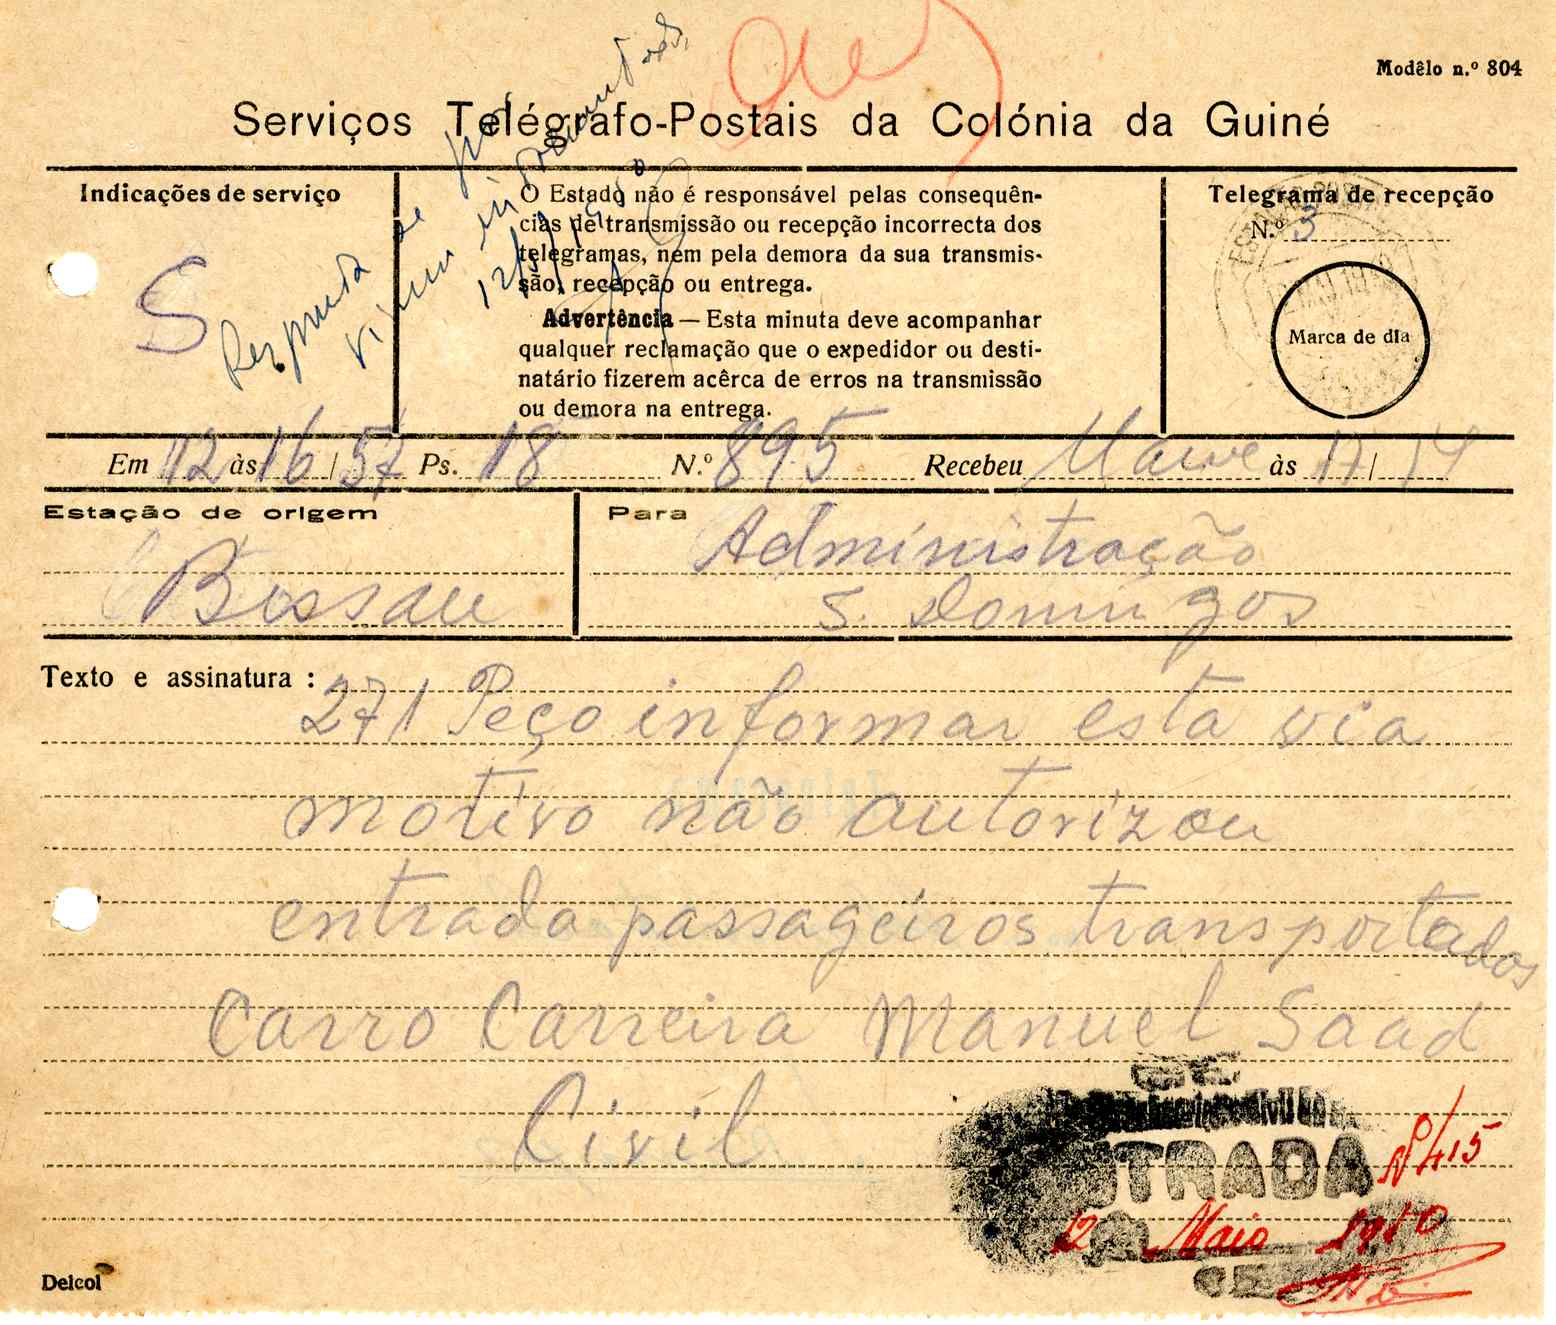 Modêlo n.º 804
Serviços Telégrafo-Postais da Colónia da Guiné
Indicações de serviço
S
O Estado não é responsável pelas consequên-
cias de transmissão ou recepção incorrecta dos
telegramas, nem pela demora da sua transmis-
são, recepção ou entrega.
Advertência — Esta minuta deve acompanhar
qualquer reclamação que o expedidor ou desti-
natário fizerem acêrca de erros na transmissão
ou demora na entrega.
Telegrama de recepção
N.º 3
Marca de dia
Em 12 às 16/57 Ps. 18 N.º 895 Recebeu às 17/14
Estação de origem
Bissau
Para
Administração
S. Domingos
Texto e assinatura :
271 Peço informar esta via
motivo não autorizou
entrada passageiros transportados
Carro Carreira Manuel Saad
Civil
ENTRADA
Nº 415
12 Maio 1950
Delcol